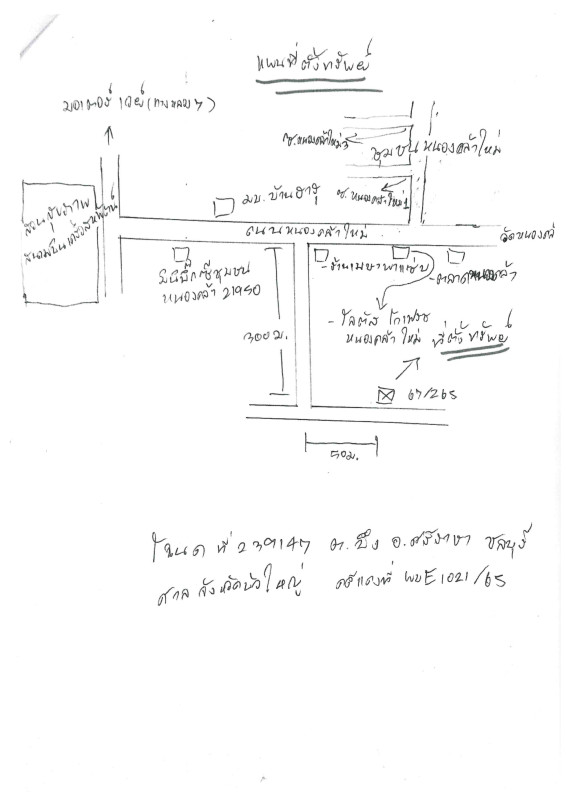 แผนที่ตั้งทรัพย์
มอเตอร์เวย์(ทางหลวง 7)
ซ.หนองคล้าใหม่3
ชุมชนหนองคล้าใหม่
ซ.หนองคล้าใหม่1
มบ.บ้านฮาลู
สวนสุขภาพ
ถนนหนองคล้าใหม่
มินิบิ๊กซีชุมชน
หนองคล้า 21950
-ร้านเมษาพาแซ่บ
-ตลาดหนองคล้า
- โลตัส โกเฟรช
หนองคล้าใหม่
ที่ตั้งทรัพย์
300ม.
67/265
50ม.
โฉนดที่ 239147 ต.บึง อ.ศรีราชา ชลบุรี
ศาลจังหวัดบัวใหญ่ คดีแดงที่ ผบE1021/65